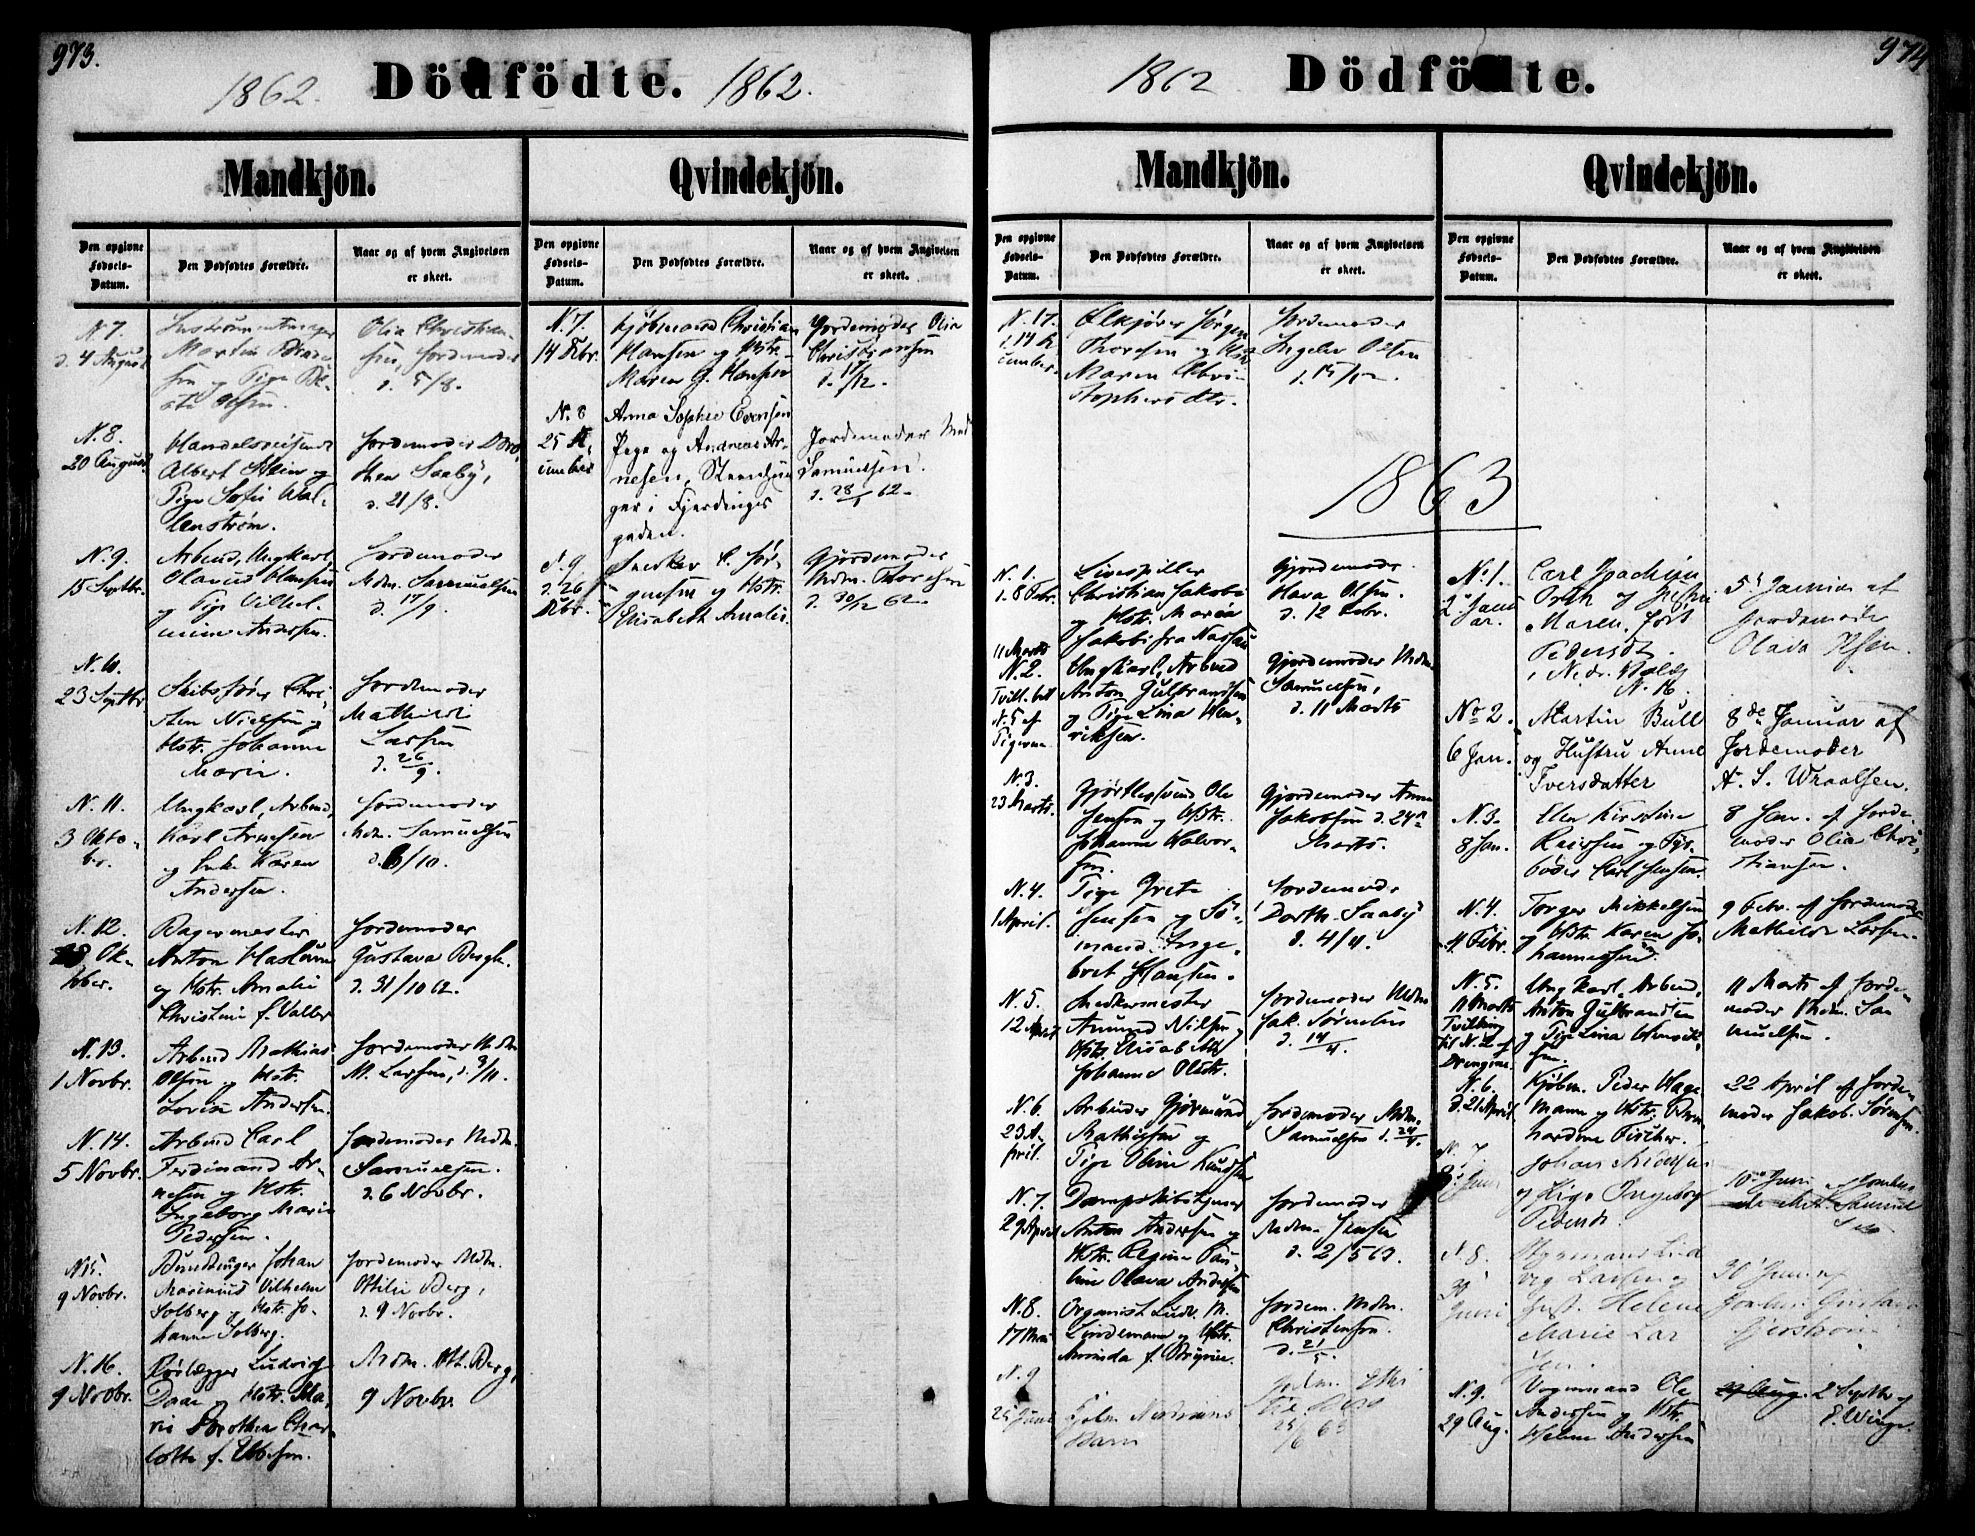 973.
1862. Dödfödte. 1862.
Mandkjön.
Den opgivne Fødsels-Datum.
Den Dødfødtes Forældre.
Naar og af hvem Angivelsen er skeet.
N. 7.
d. 4 August
Instrumentmager
Martin
og Pige
Olsen.
Olia Christian-
sen, Jordemoder
d. 5/8.
N. 8.
20 August
Handelsreisende
Albert Stein og
Pige Sofie Wal-
lenstrøm.
Jordemoder Doro-
thea Saaby,
d. 21/8.
N. 9.
15 Septbr.
Arbeid, Ungkarl
Olavus Hansen
og Pige Vilhel-
mine Andersen.
Jordemoder
Mdm. Samuelsen
d. 17/9.
N. 10.
23 Septbr
Skibsfører Chri-
sten Nielsen og
Hstr. Johanne
Marie.
Jordemoder
Mathilde
Larsen
d. 26/9.
N. 11.
3 Okto-
br.
Ungkarl, Arbeid,
Karl Arnesen
og Enke Karen
Andersen.
Jordemoder
Mdm. Samuelsen
d. 6/10.
N. 12.
Ok-
tober.
Bagermester
Anton Haslum
og Hstr. Amalie
Christine f. Valler
Jordemoder
Gustava Bergh.
d. 31/10 62.
N. 13.
1 Novbr.
Arbeid Mathias
Olsen og Hstr.
Lovise Andersen.
Jordemoder Mdm
M. Larsen, d. 3/11.
N. 14.
5 Novbr.
Arbeid Carl
Ferdinand Ar-
nesen og Hstr.
Ingeborg Marie
Pedersen.
Jordemoder Mdm.
Samuelsen.
d. 6 Novbr.
N. 15.
9 Novbr.
Bundtmager Johan
Marinius Vilhelm
Solberg og Hstr. Jo-
hanne Solberg.
Jordemoder Mdm.
Ottilie Berg,
d. 9 Novbr.
N. 16.
9 Novbr.
Rørlægger Ludvig
Daae og Hstr. Ma-
rie Dorothea Char-
lotte f. Ebbesen.
Mdm. Ott. Berg,
9 Novbr.
Qvindekjön.
Den opgivne Fødsels-Datum.
Den Dødfødtes Forældre.
Naar og af hvem Angivelsen er skeet.
N. 7.
14 Dbr.
Kjøbmand Christian
Hansen og Hstr.
Maren G. Hansen
Jordemoder Olia
Christiansen
d. 17/12.
N. 8
25 De-
cember
Anna Sophie Evensen
Pige og Andreas Ar-
nesen, Stenhug-
ger i Fjerdings
gaden.
Jordemoder Mdm
Samuelsen.
d. 28/ 62.
N. 9.
d. 26
Dcbr.
Snedker C. Jør-
gensen og Hstr.
Elisabeth Amalie.
Gjordemoder
Mdm. Thoresen
d. 30/12 62.
974
1862 Dödfödte.
Mandkjön.
Den opgivne Fødsels-Datum.
Den Dødfødtes Forældre.
Naar og af hvem Angivelsen er skeet.
N. 17.
d. 14 De-
cember.
Ølkjører Jørgen
Thoresen og Hstr
Maren Chri-
stophersdtr.
Jordemoder
Ingeb. Olsen
d. 15/12.
1863
N. 1.
d. 8 Febr.
Lirespiller
Christian Jakobi
og Hstr. Maria
Jakobi fra Nassau
Gjordemoder
Hava Olsen.
d. 12 Febr.
11 Marts
N. 2.
Tvill. till
N. 5 af
Pigerne.
Ungkarl, Arbeid
Anton Gulbrandsen
og Pige Lina Hen-
riksen.
Gjordemoder Mdm.
Samuelsen,
d. 11 Marts
N. 3.
23 Marts.
Gjørtlersvend Ole
Jensen og Hstr.
Johanne Halvor-
sen.
Gjordemoder Anna
Jakobsen d. 24de
Marts.
N. 4.
1 April.
Pige Grete
Jensen og Sø-
mand Inge-
bret Hansen.
Jordemoder
Dorth. Saaby
d. 4/4.
N. 5.
12 April
Snedkermester
Amund Nilsen og
Hstr. Elisabeth
Johanne Olsdtr.
Jordemoder Mdm
Jak. Sørensen
d. 14/4.
N. 6.
23 A-
pril.
Arbeider Gjørmund
Mathisen og
Pige Oline Knudsen
Jordemoder Mdm.
Samuelsen d. 24/4.
N. 7.
29 April
Dampskibstjener
Anton Andersen og
Hstr. Regine Pau-
line Olava Andersen
Jordemoder
Mdm. Jensen
d. 2/5 63.
N. 8.
17 Mai
Organist Ludv. M.
Lindemann og Hstr.
Aminda f. Brynie.
Jordem. Mdm.
Christensen.
d. 21/5.
N. 9
25 Juni
Barn
25/6 63
Qvindekjön.
Den opgivne Fødsels-Datum.
Den Dødfødtes Forældre.
Naar og af hvem Angivelsen er skeet.
No 1.
2 Janu-
ar.
Carl Joachim
Orth og Hustru
Maren, født
Pedersdt.
i Nedr. Voldg
N. 16.
5te Januar af
Jordemoder
Olava Olsen.
No 2.
6 Jan.
Martin Bull
og Hustru Anne
Iversdatter
8de Januar af
Jordemoder
A. S. Wraalsen.
N. 3.
8 Jan.
Elen Kirstine
Reiersen og Fyr-
bøder Carl Jensen.
8 Jan. af Jorde-
moder Olia Chri-
stiansen.
N. 4.
4 Febr.
Torger Mikkelsen
og Hstr. Karen Jo-
hannessen.
9 Febr. af Jordemoder
Mathilde Larsen.
N. 5.
11 Marts
Tvilling
til N. 2 af
Drengene.
Ungkarl, Arbeid,
Anton Gulbrandsen
og Pige Lina Henrik-
sen.
11 Marts af Jorde-
moder Mdm. Sam-
uelsen.
N. 6.
d. 21 April.
Kjøbm. Peder Hage-
mann og Hstr. Bern-
hardine Fischer.
22 April af Jorde-
moder Jakob. Sørensen.
N. 7.
8de Juni
Johan Andersen
og Pige Ingeborg
Pedersdt.
10de Juni af Jordmo-
der Samuel
sen
N. 8.
30
Juni
Styrmand Lud-
vig Larsen og
Hust. Helene
Marie Lar-
sen.
30te Juni af
Jordm. Gustava
N. 9.
29 Aug.
Vognmand Ole
Andersen og Hstr.
Helene Andersen
29 Aug. 2 Septbr af
E. Winge.